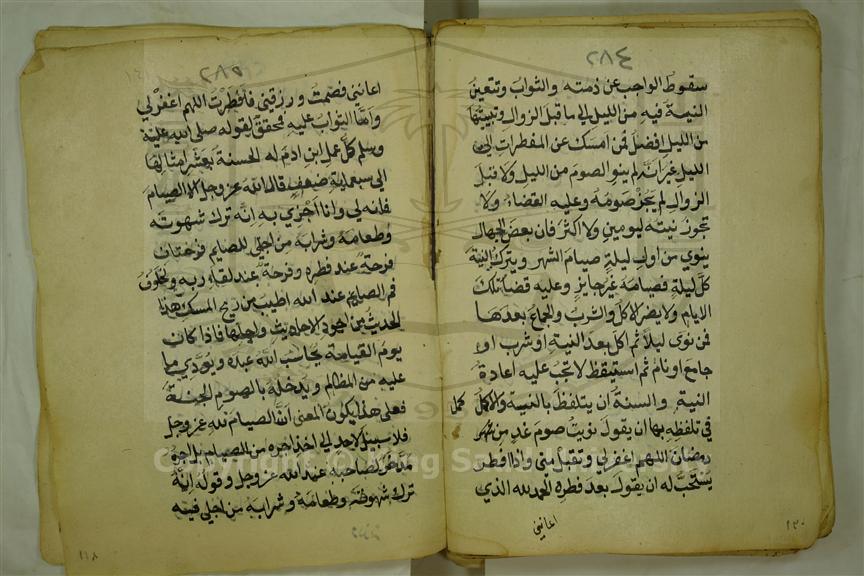 ٢٨٤
سقوط الواجب عن ذمته والثواب وتتعين
النية فيه من الليل الى ما قبل الزوال وتبييتها
من الليل افضل فمن امسك عن المفطرات الى
الليل غير انه لم ينو الصوم من الليل ولا قبل
الزوال لم يجز صومه وعليه القضاء ولا
تجوز نيته ليومين ولا اكثر فان بعض الجهال
ينوي من اول ليلة صيام الشهر ويترك النية
كل ليلة فصيامه غير جايز وعليه قضا تلك
الايام ولا يضر الاكل والشرب والجماع بعدها
فمن نوى ليلا ثم اكل بعد النية او شرب او
جامع او نام ثم استيقظ لا تجب عليه اعادة
النية والسنة ان يتلفظ بالنية والاكمل كل
في تلفظه بها ان يقول نويت صوم غد من شهر
رمضان اللهم اغفر لي وتقبل مني واذا فطر
يستحب له ان يقول بعد فطره الحمد لله الذي
اعانني
١٣٠
٢٨٥
اعانني فصمت ورزقني فافطرت اللهم اغفر لي
واما الثواب عليه فمحقق لقوله صلى الله عليه
وسلم كل عمل ابن ادم له الحسنة بعشر امثالها
الى سبعماية ضعف قال الله عز وجل الا الصيام
فانه لي وانا اجزي به انه ترك شهوته
وطعامه وشرابه من اجلي للصايم فرحتان
فرحة عند فطره وفرحة عند لقا ربه ولخلوف
فم الصايم عند الله اطيب من ريح المسك هذا
الحديث من اجود الاحاديث واجلها فاذا كان
يوم القيامة يحاسب الله عبده ويؤدي ما
عليه من المظالم ويدخله بالصوم الجنة
فعلى هذا يكون المعنى ان الصيام لله عز وجل
فلا سبيل لاحد الى اخذ اجره من الصيام بل اجره
مدخر لصاحبه عند الله عز وجل وقوله انه
ترك شهوته وطعامه وشرابه من اجلي فيه
Copyright © King Saud University